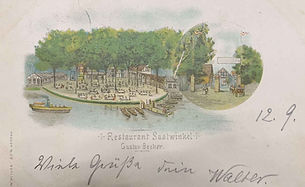 Restaurant Saatwinkel
Gustav Becker.
12.9.
Viele Grüße Dein Walter.